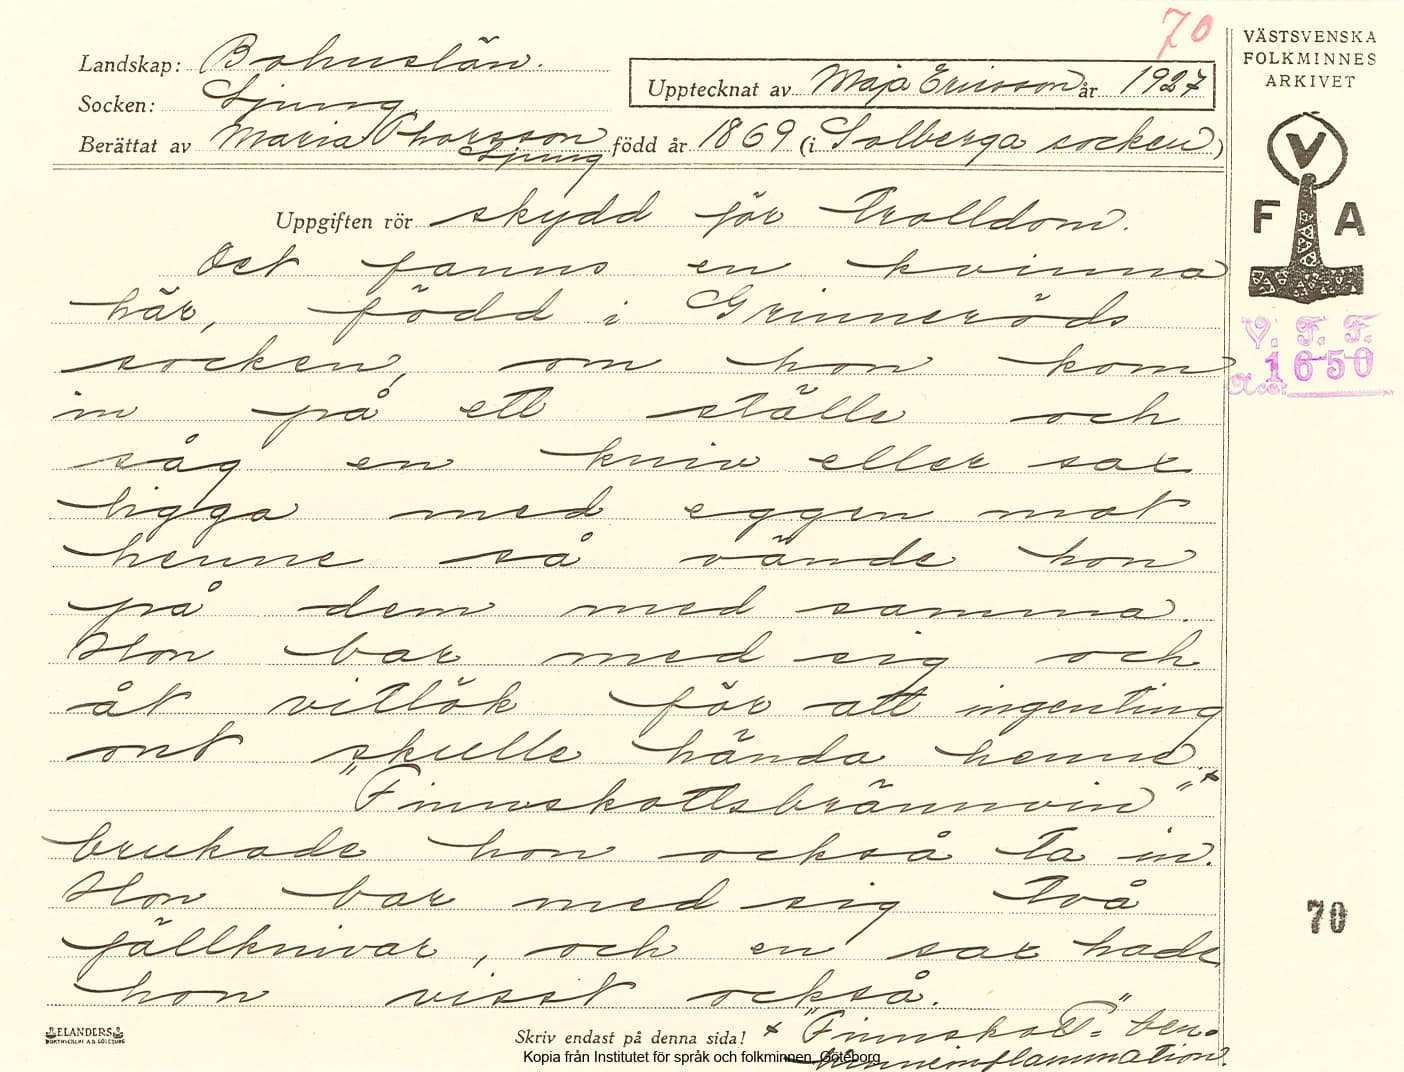 70
Landskap: Bohuslän.
Socken: Ljung
Upptecknat av Maja Ericsson år 1927
Berättat av Maria Thorsson Ljung född år 1869 (i Solberga socken)
VÄSTSVENSKA
FOLKMINNES
ARKIVET
V
F A
V. F. F.
1650
Acc.
Uppgiften rör skydd för trolldom.
Det fanns en kvinna
här, född i Grinneröds
socken, om hon kom
in på ett ställe och
såg en kniv eller sax
ligga med eggen mot
henne så vände hon
på dem med samma.
Hon bar med sig och
åt vitlök för att ingenting
ont skulle hända henne.
"Finnskottsbrännvin" x
brukade hon också ta in.
Hon bar med sig två
fällknivar, och en sax hade
hon visst också.
70
ELANDERS
BOKTRYCKERI A.B. GÖTEBORG
Skriv endast på denna sida!
x "Finnskott" = ben-
hinneinflammation.
Kopia från Institutet för språk och folkminnen, Göteborg